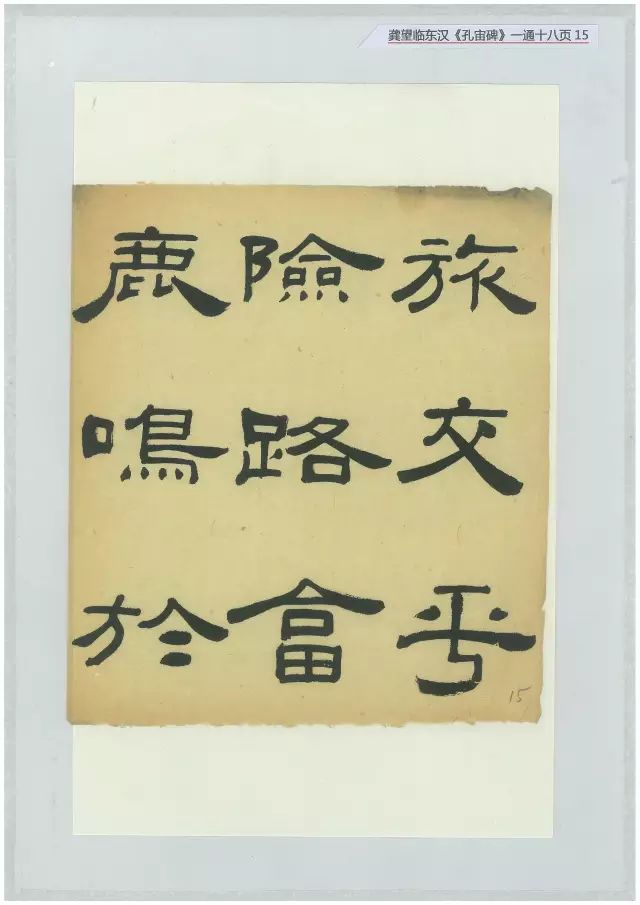 龚望临东汉《孔宙碑》一通十八页 15
旅交乎
險路會
鹿鳴於
15